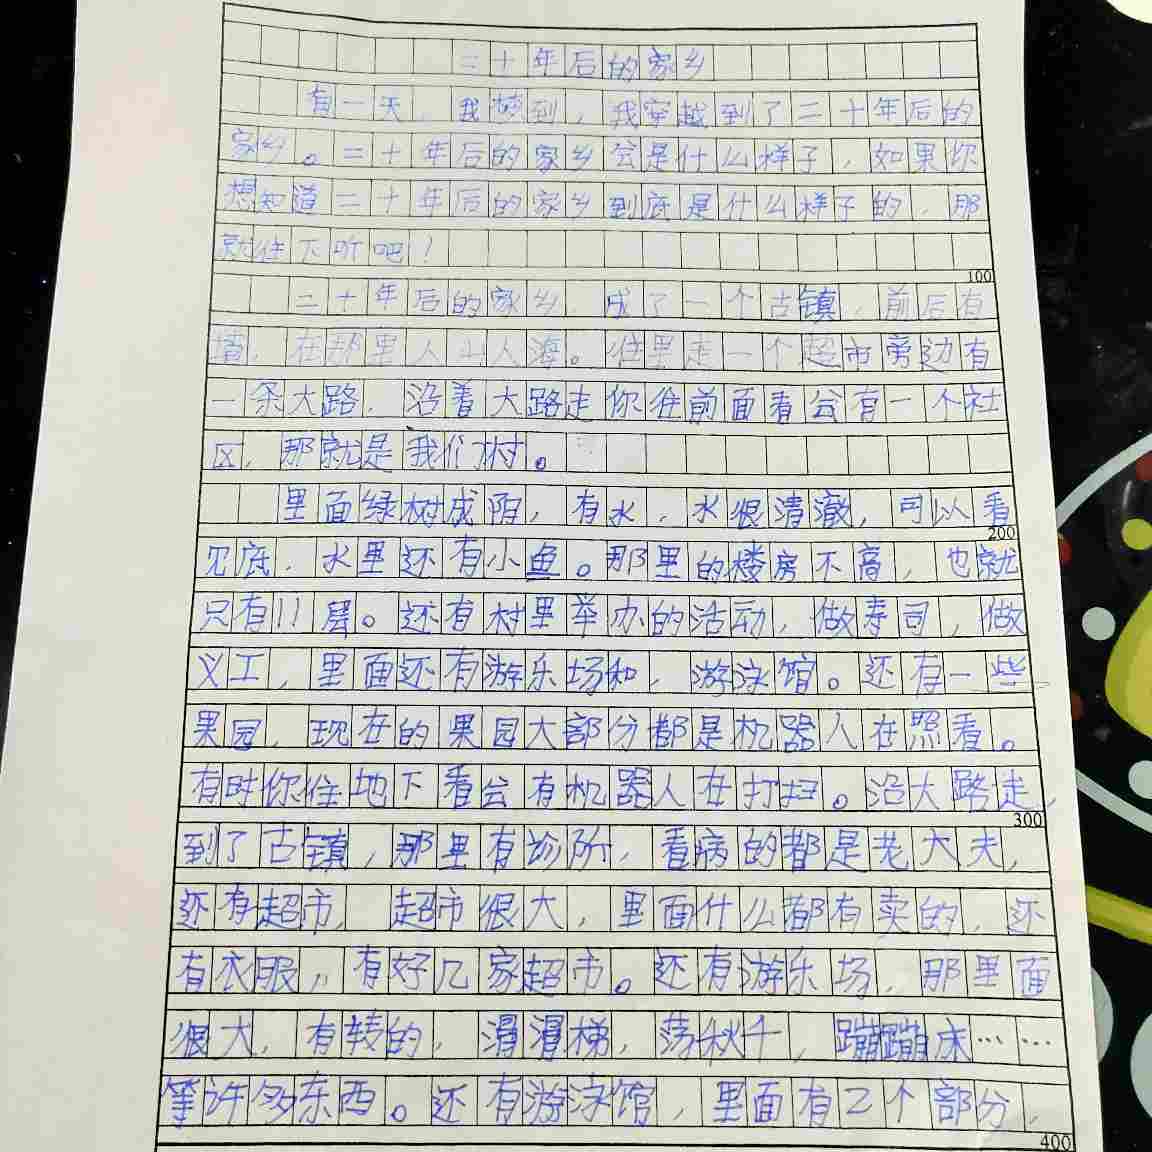 二十年后的家乡
有一天，我梦到，我穿越到了二十年后的
家乡。二十年后的家乡会是什么样子，如果你
想知道二十年后的家乡到底是什么样子的，那
就往下听吧！
100
二十年后的家乡，成了一个古镇，前后有
墙，在那里人山人海。往里走一个超市旁边有
一条大路，沿着大路走你往前面看会有一个社
区，那就是我们村。
里面绿树成阴，有水，水很清澈，可以看
200
见底，水里还有小鱼。那里的楼房不高，也就
只有11层。还有村里举办的活动，做寿司，做
义工，里面还有游乐场和，游泳馆。还有一些
果园，现在的果园大部分都是机器人在照看。
有时你往地下看会有机器人在打扫。沿大路走，
300
到了古镇，那里有诊所，看病的都是老大夫，
还有超市，超市很大，里面什么都有卖的，还
有衣服，有好几家超市。还有游乐场，那里面
很大，有转的，滑滑梯，荡秋千，蹦蹦床……
等许多东西。还有游泳馆，里面有2个部分，
400